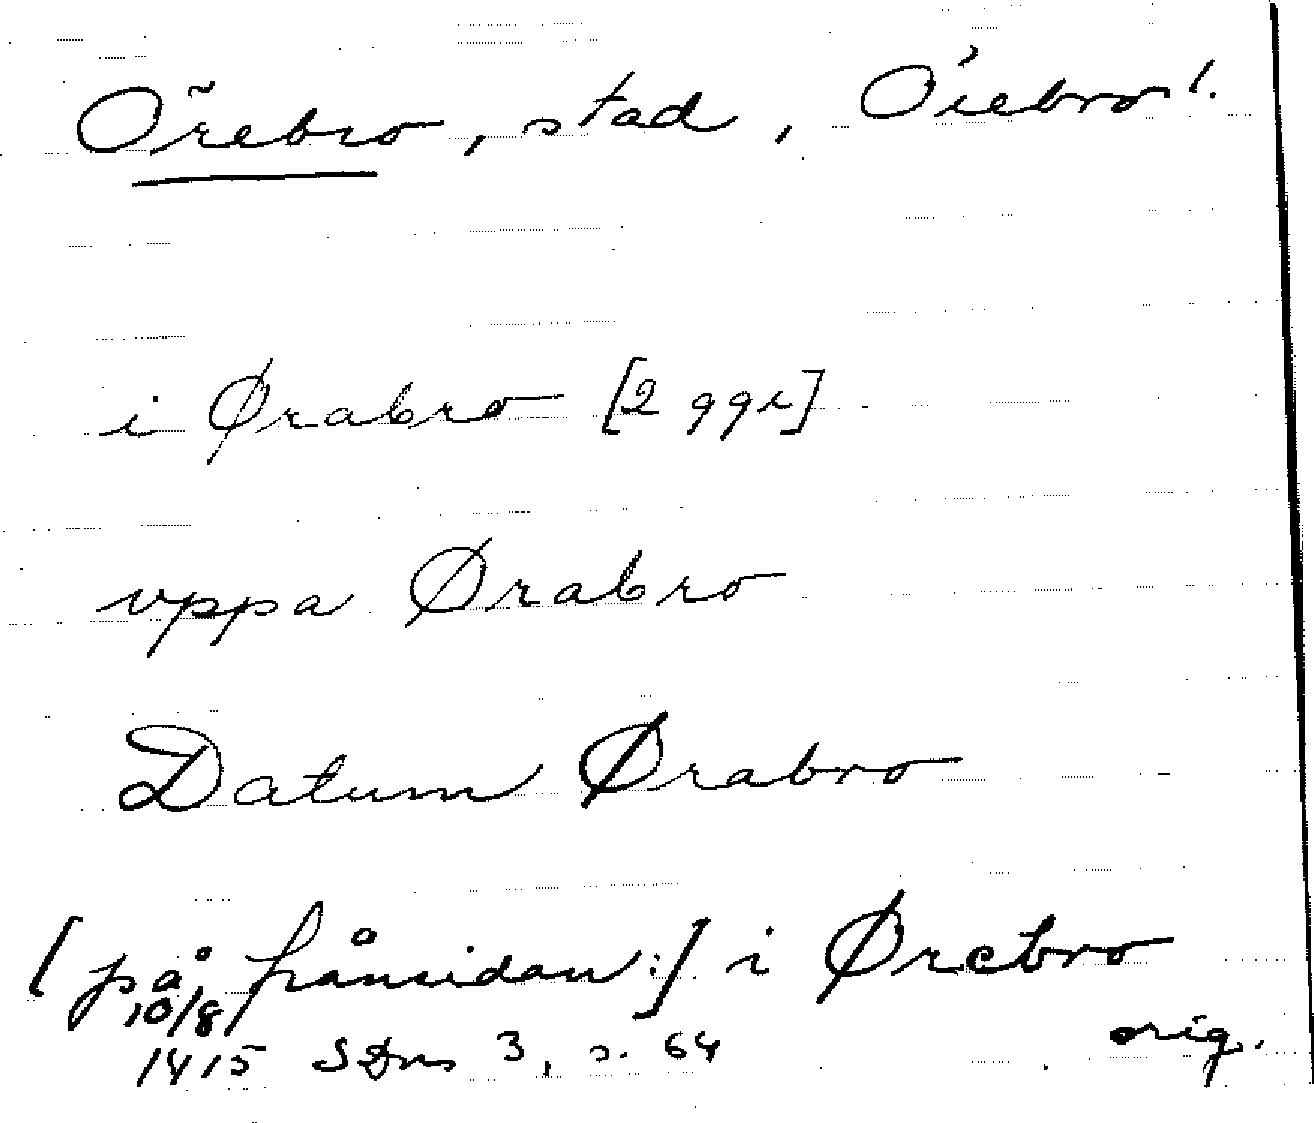 Örebro, stad, Örebro l.
i Ørabro [2 ggr]
vppa Ørabro
Datum Ørabro
[på frånsidan:] i Ørebro
10/8
1415 SDns 3, s. 64 orig.